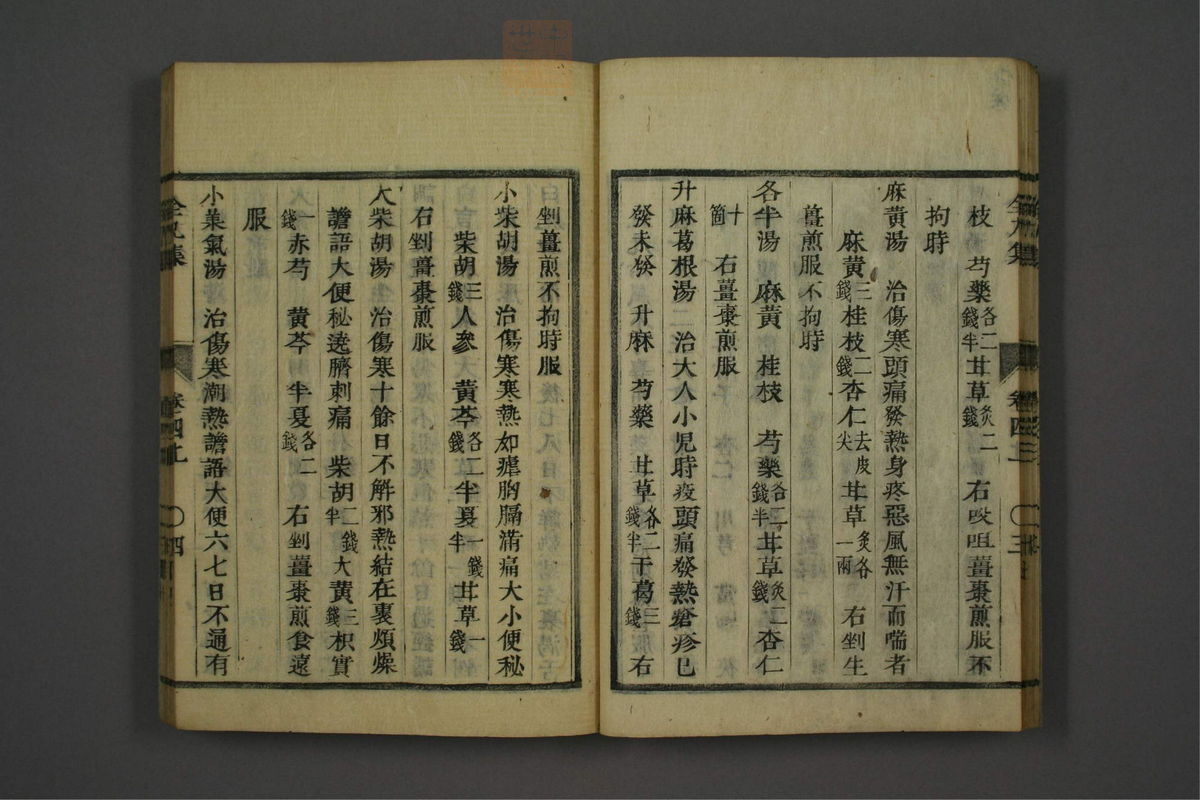 枝 芍藥各二錢半 甘草炙二錢 右㕮咀薑棗煎服不
拘時
麻黃湯 治傷寒頭痛發熱身疼惡風無汗而喘者
麻黃三錢 桂枝二錢 杏仁去皮尖 甘草炙各一兩 右剉生
薑煎服不拘時
各半湯 麻黃 桂枝 芍藥各二錢半 甘草炙二錢 杏仁
十箇 右薑棗煎服
升麻葛根湯二 治大人小児時疫頭痛發熱瘡疹已
發未發 升麻 芍藥 甘草各二錢半 干葛三錢 右
剉薑煎不拘時服
小柴胡湯 治傷寒寒熱如瘧胸膈滿痛大小便秘
柴胡三錢 人參 黃芩各二錢 半夏一錢半 甘草一錢
右剉薑棗煎服
大柴胡湯 治傷寒十餘日不解邪熱結在裏煩燥
譫語大便秘遶臍刺痛 柴胡二錢半 大黃三錢 枳實
一錢 赤芍 黃芩 半夏各二錢 右剉薑棗煎食遠
服
小承氣湯 治傷寒潮熱譫語大便六七日不通有
卷四
三
卷四
四